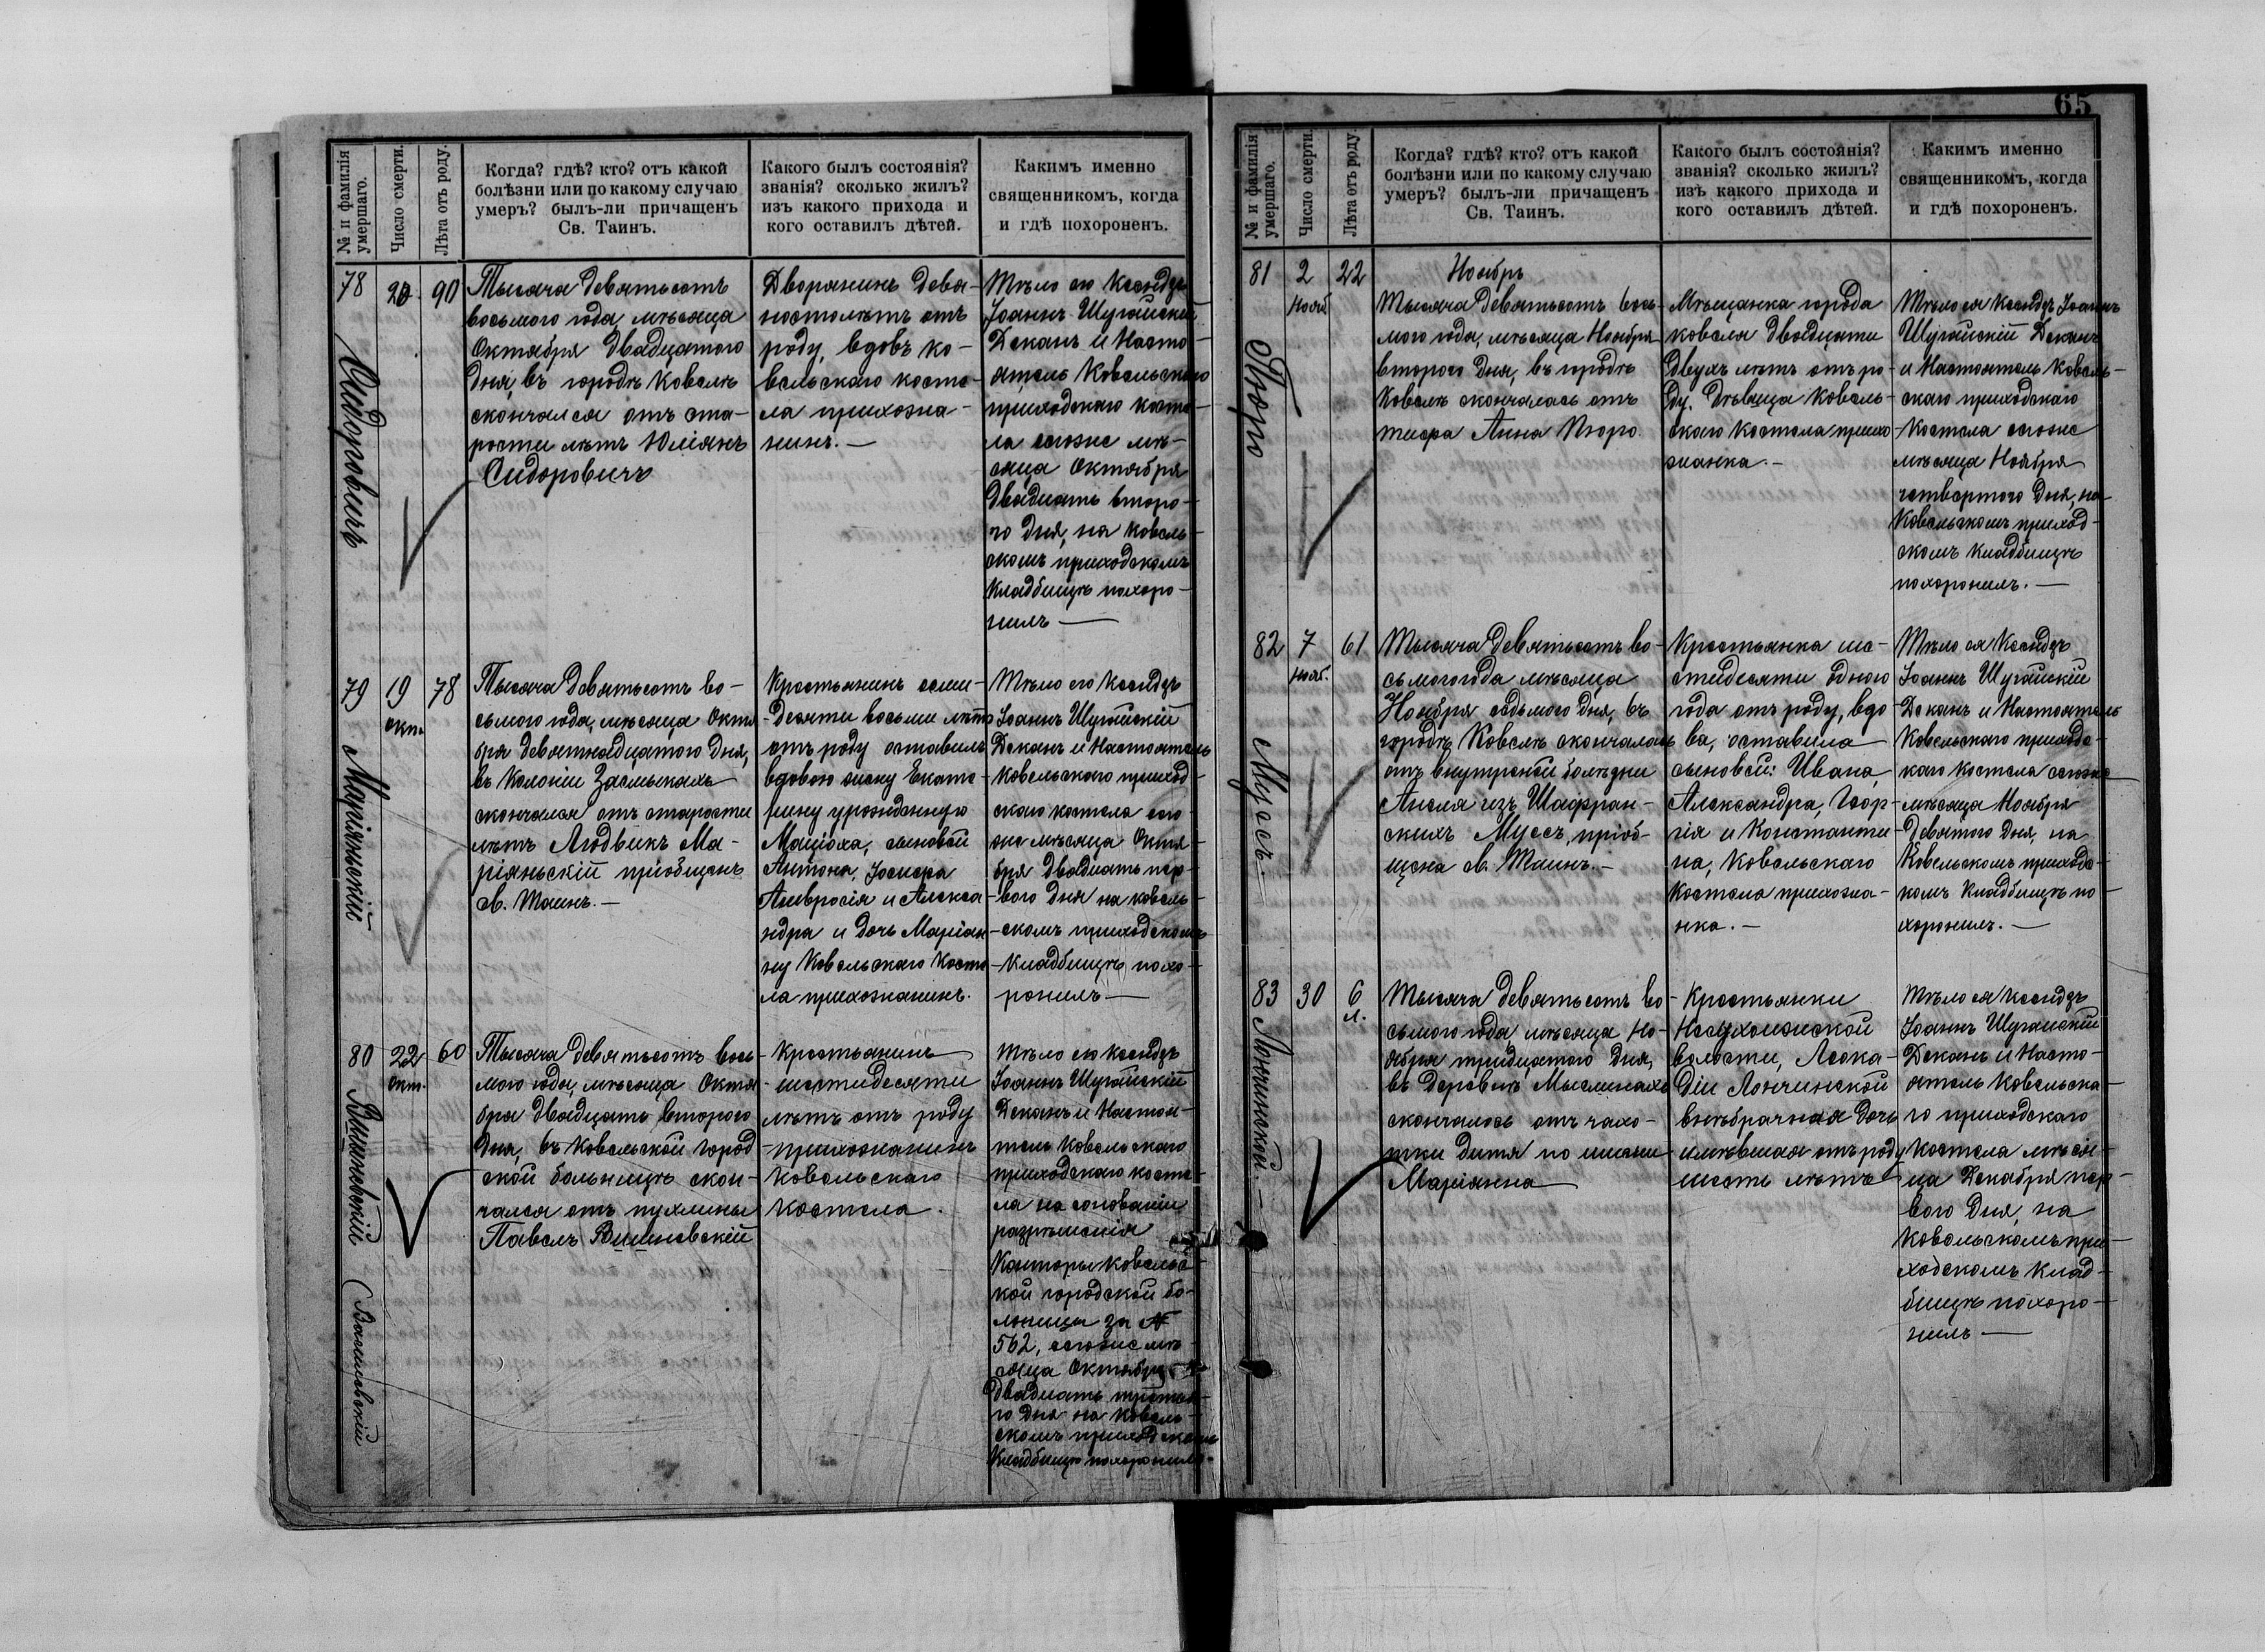 № и фамилія умершаго.
Число смерти.
Лѣта отъ роду.
Когда? гдѣ? кто? отъ какой
болѣзни или по какому случаю
умеръ? былъ-ли причащенъ
Св. Таинъ.
Какого былъ состоянія?
званія? сколько жилъ?
изъ какого прихода и
кого оставилъ дѣтей.
Каким​ъ именно
священникомъ, когда
и гдѣ похороненъ.
78
Сидоровичъ
20
90
Тысяча девятьсотъ
восьмого года, мѣсяца
Октября двадцатого
дня, въ городѣ Ковелѣ
скончался отъ ста-
рости лѣтъ Юліянъ
Сидоровичъ
Дворянинъ девя-
ностолѣтъ отъ
роду, вдовъ ко-
вельскаго косте-
ла прихожа-
нинъ. —
Тѣло его Ксендзъ
Іоаннъ Шугайскій
Деканъ и Насто-
ятель Ковельскаго
приходскаго косте-
ла сегоже мѣ-
сяца Октября
двадцать второ-
го дня, на ковель-
скомъ приходскомъ
кладбищѣ похоро-
нилъ —
79
Маріяньскій
19
окт.
78
Тысяча девятьсотъ во-
сьмого года, мѣсяца Октя-
бря девятнадцатого дня,
въ Колоніи Засмыкахъ
скончался отъ старости
лѣтъ Людвикъ Ма-
ріяньскій пріобщенъ
св. Таинъ. —
Крестьянинъ семи-
десяти восьми лѣтъ
отъ роду оставилъ
вдовою жену Екате-
рину урожденную
Маціоха, сыновей
Антона, Іосифа
Амвросія и Алекса-
ндра и дочь Маріан-
ну Ковельскаго косте-
ла прихожанинъ.
Тѣло его Ксендзъ
Іоаннъ Шугайскій
Деканъ и Настоятель
Ковельскаго приход-
скаго костела сего-
же мѣсяца Октя-
бря двадцать пер-
вого дня на ковель-
скомъ приходскомъ
кладбищѣ похо-
ронилъ —
80
Вишневскій (Василевскій
22
окт.
60
Тысяча девятьсотъ вось-
мого года, мѣсяца Октя-
бря двадцать второго
дня, въ Ковельской город
ской больницѣ скон-
чался отъ пухлины
Павелъ Вишневскій
Крестьянинъ
шестидесяти
лѣтъ отъ роду
прихожанинъ
Ковельскаго
костела.
Тѣло его ксендзъ
Іоаннъ Шугайскій
Деканъ и Настоя-
тель Ковельскаго
приходскаго косте-
ла на основаніи
разрѣшенія
Конторы Ковельс-
кой городской бо-
льницы за №
562, сегоже мѣ-
сяца Октября
двадцать третья-
го дня на Ковель-
скомъ приходскомъ
кладбищѣ похоронилъ.
65
№ и фамилія умершаго.
Число смерти.
Лѣта отъ роду.
Когда? гдѣ? кто? отъ какой
болѣзни или по какому случаю
умеръ? былъ-ли причащенъ
Св. Таинъ.
Какого былъ состоянія?
званія? сколько жилъ?
изъ какого прихода и
кого оставилъ дѣтей.
Какимъ именно
священникомъ, когда
и гдѣ похороненъ.
81
Пюро
2
Нояб
22
Ноябрь
Тысяча девятьсотъ вось-
мого года, мѣсяца Ноября
второго дня, въ городѣ
Ковелѣ скончалась отъ
тифа Анна Пюро.
Мѣщанка города
ковеля двадцати
двухъ лѣтъ отъ ро-
ду. Дѣвица Ковель-
скаго костела прихо
жанка. —
Тѣло ея Ксендзъ Іоаннъ
Шугайскій Деканъ
и Настоятель Ковель-
скаго приходскаго
костела сегоже
мѣсяца Ноября
четвертого дня, на
Ковельскомъ приход-
скомъ кладбищѣ
похоронилъ. —
82
Муссъ
7
нояб.
61
Тысяча девятьсотъ во-
сьмого года мѣсяца
Ноября седьмого дня, въ
городѣ Ковелѣ скончалась
отъ внутренней болѣзни
Анеля изъ Шафран-
скихъ Муссъ, пріоб-
щена св. Таинъ. —
Крестьянка ше-
стидесяти одного
года отъ роду, вдо
ва, оставила
сыновей: Ивана,
Александра, Геор-
гія и Константи-
на, Ковельскаго
костела прихожа-
нка. —
Тѣло ея Ксендзъ
Іоаннъ Шугайскій
Деканъ и Настоятель
Ковельскаго приходс-
каго костела сегоже
мѣсяца Ноября
девятого дня, на
Ковельскомъ приходс-
комъ кладбищѣ по-
хоронилъ. —
83
Лончинской. —
30
6
л.
Тысяча девятьсотъ во-
сьмого года, мѣсяца Но-
ября тридцатого дня,
въ деревнѣ Мыслинахъ
скончалось отъ чахо-
тки дитя по имени
Маріянна
Крестьянки
Несухоижской
волости, Леока-
діи Лончинской
внѣбрачная дочь
имѣвшая отъ роду
шесть лѣтъ
Тѣло ея ксендзъ
Іоаннъ Шугайскій
Деканъ и Насто-
ятель Ковельска-
го приходскаго
костела мѣся-
ца Декабря пер-
вого дня, на
Ковельскомъ при-
ходскомъ клад-
бищѣ похоро-
нилъ —